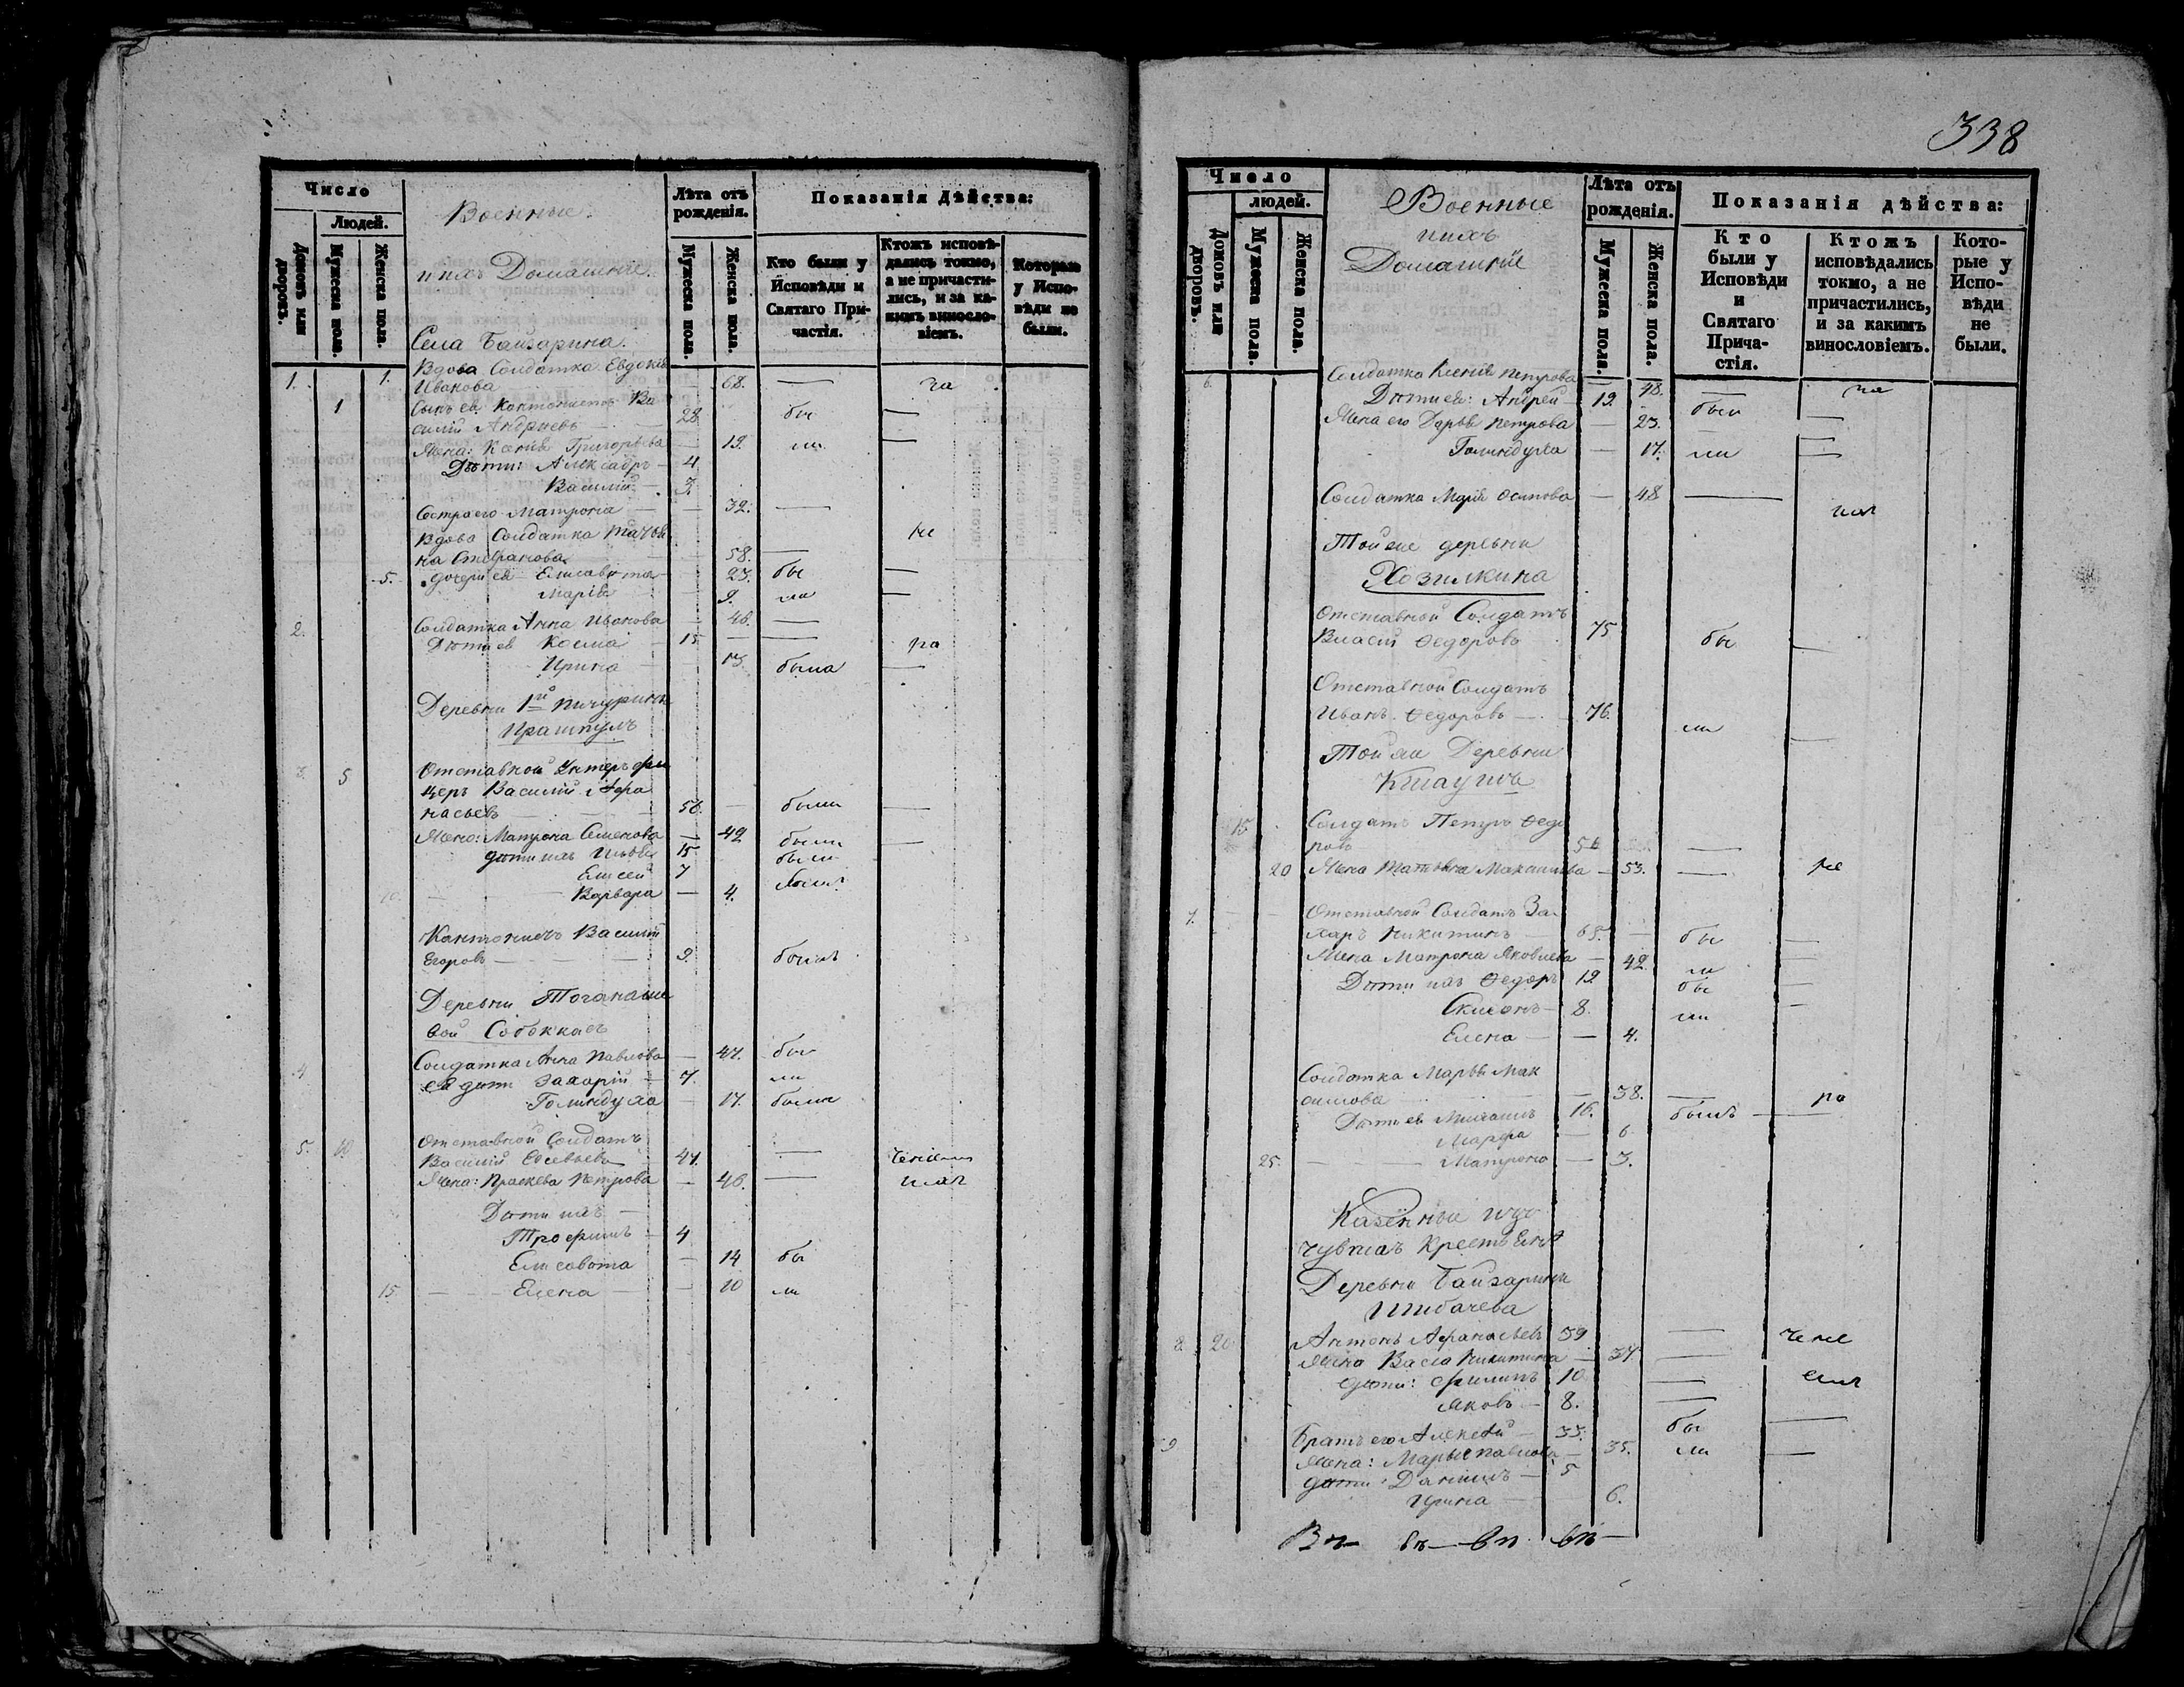 Число
Людей.
Домовъ или дворовъ.
Мужеска пола.
Женска пола.
Военные
и ихъ Домашніе.
Лѣта отъ рожденія.
Мужеска пола.
Женска пола.
Показанія дѣйства:
Кто были у Исповѣди и Святаго Причастія.
Ктожъ исповѣдались токмо, а не причастились, и за какимъ винословіемъ.
Которые у Исповѣди не были.
Села Байгарина.
1. 1. Вдова Солдатка Евдокія
Иванова 68. —
1 Сынъ ея Кантонистъ Ва
силій Андреевъ — 28 бы —
Жена: Ксенія Григорьева — 19. ли —
Дѣти: Александръ — 4
Василій — 3.
Сестра его Матрона — 32. —
Вдова Солдатка Татья
на Стефанова — 58. — не
5. дочери ея Елисавета — 23. бы —
Марія — 9. ли —
2. Солдатка Анна Иванова — 46. —
Дѣти ея Косма — 15 — —
Ирина — 13. была —
Деревни 1й Пичурина
Ираишулъ
3. 5 Отставной Унтеръ офи
церъ Василій Афа
насьевъ — 56. — были —
Жена: Матрона Семенова — 49 были —
дѣти ихъ Илья 15 были
Елисей 7
10. Варвара — 4.
Кантонистъ Василій
Егоровъ — 9. былъ
Деревни Тоганаше
вой
4 Солдатка Анна Павлова — 47. бы
ея дѣти Захарій — 7. ли
Голиндуха — 17. были
5. 10 Отставной Солдатъ
Василій 47. —
Жена: Праскева Петрова — 46. —
Дѣти ихъ —
Трофимъ — 4
Елисавета — 14 бы
15. Елена — 10 ли
338
Число
людей.
Домовъ или дворовъ.
Мужеска пола.
Женска пола.
Военные
ихъ
Домашніе
Лѣта отъ рожденія.
Мужеска пола.
Женска пола.
Показанія дѣйства:
Кто были у Исповѣди и Святаго Причастія.
Ктожъ исповѣдались токмо, а не причастились, и за какимъ винословіемъ.
Которые у Исповѣди не были.
6. Солдатка Ксенія Петрова — 48. —
Дѣти ея: Андрей — 19. были —
Жена его Дарья Петрова — 23. —
Голиндуха — 17. ли —
Солдатка Марія Осипова — 48 —
Той же деревни
Хозилкина
Отставной Солдатъ
Власій Ѳедоровъ 75 бы —
Отставной Солдатъ
Иванъ Ѳедоровъ — 76. ли —
Той же Деревни
15 Солдатъ Петръ Ѳедо
ровъ —
20 Жена Татьяна Максимова — 53. — не
7. Отставной Солдатъ За
харъ Никитинъ 65. — бы —
Жена Матрона Яковлева — 42. ли —
Дѣти ихъ Ѳедоръ 19 бы —
Симеонъ — 8. ли —
Елена — — 4.
Солдатка Марья Мак
симова — 38. —
Дѣти ея Михаилъ 16. былъ —
Марфа — 6
25. Матрона — 3.
Казенные изъ
чувашъ Крестьяне
Деревни Байгарина
Ишбачева
8. 20 Антонъ Афанасьевъ 39 —
Жена Васса Никитина — 37. —
дѣти: Филипъ 10 —
Яковъ — 8. —
9 Братъ его Алексѣй — 33. бы —
Жена: Марья Павлова — 35. ли —
дѣти: Даніилъ — 5
Ирина — 6.